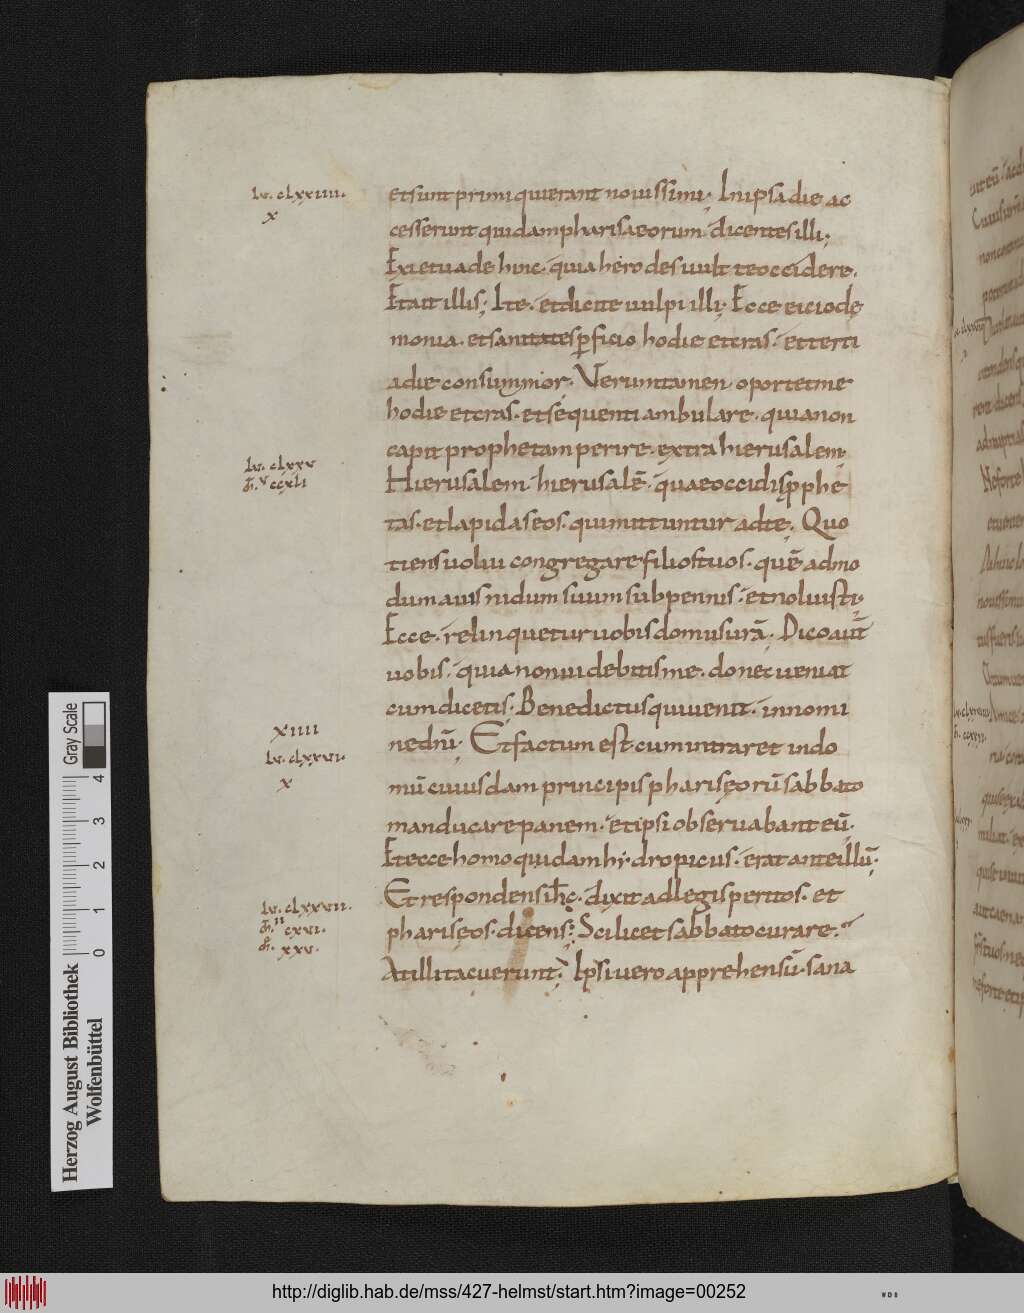 lv. clxxiiii.
x
et sunt primi qui erant nouissimi; In ipsa die ac
cesserunt quidam pharisaeorum dicentes illi;
Exi et uade hinc. quia herodes uult te occidere.
Et ait illis; Ite. et dicite uulpi illi; Ecce eicio dę
monia. et sanitates ꝑficio hodie et cras. et terti
a die consummor. Verumtamen oportet me
hodie et cras. et sequenti ambulare. quia non
capit prophetam perire. extra hierusalem;
lv. clxxv
m̄. v ccxli
Hierusalem hierusalē. quae occidis pphe
tas. et lapidas eos. qui mittuntur ad te. Quo
tiens uolui congregare filios tuos. quē ad mo
dum auis nidum suum sub pennis. et noluisti.
Ecce. relinquetur uobis domus urā. Dico aūt
uobis. quia non uidebitis me. donec ueniat
cum dicetis. Benedictus qui uenit. in nomi
ne dnī; Et factum est cum intraret in do
xiiii
lv. clxxvi.
x
mū cuiusdam principis pharisęorū sabbato
manducare panem. et ipsi obseruabant eū.
Et ecce homo quidam hydropicus. erat ante illū;
lv. clxxvii.
m̄. ii cxvi.
m̄r. xxv.
Et respondens ihc. dixit ad legisperitos. et
pharisęos. dicens; Si licet sabbato curare.
At illi tacuerunt; Ipsi uero apprehensū. sana
Gray Scale
4 3 2 1 0
Herzog August Bibliothek
Wolfenbüttel
http://diglib.hab.de/mss/427-helmst/start.htm?image=00252